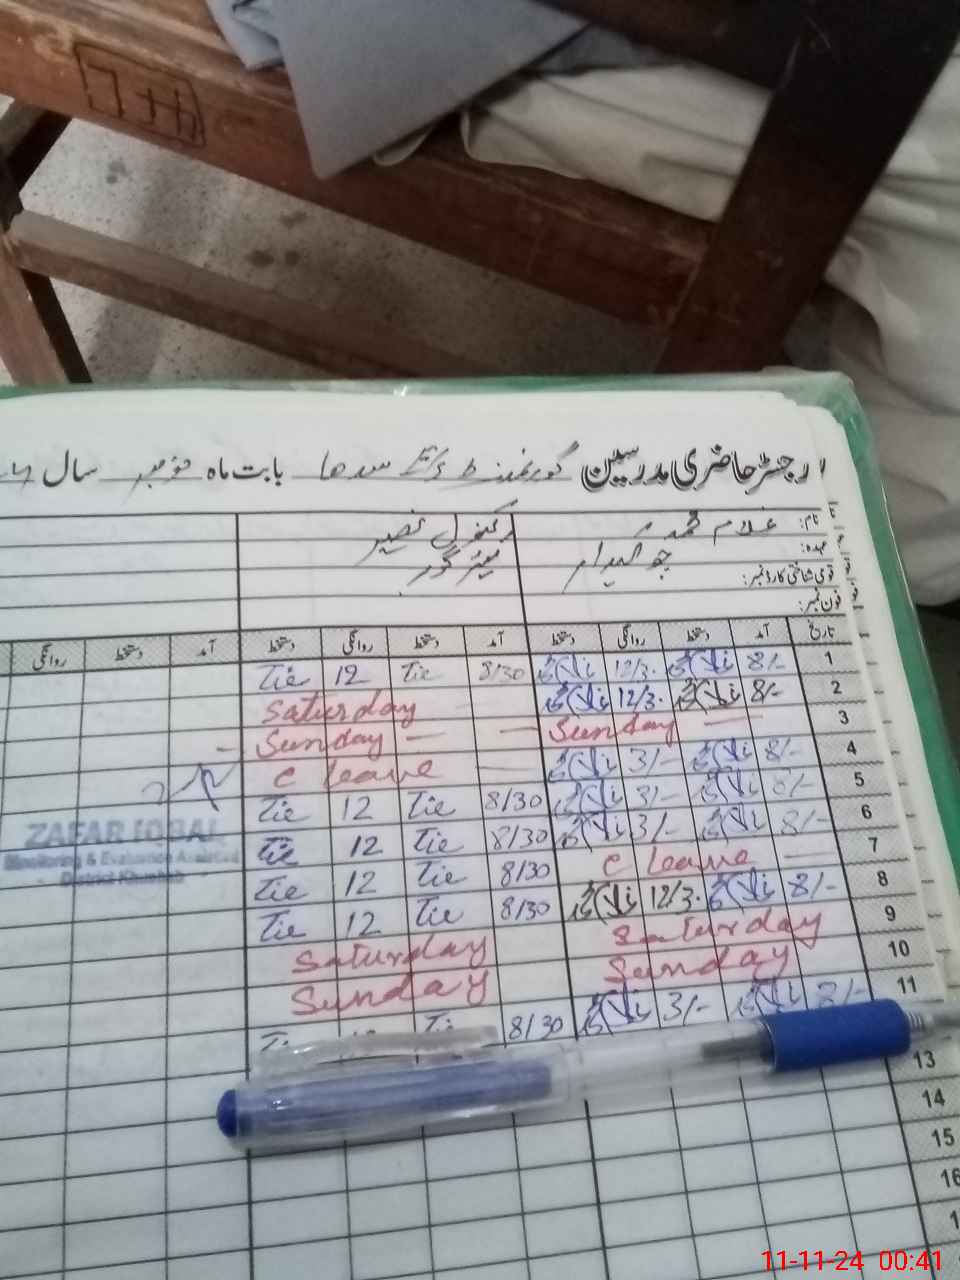 رجسٹر حاضری مدرسین گورنمنٹ بابت ماہ نومبر سال
نام: غلام محمد
کنول نصیر
عہدہ: چوکیدار
قومی شناختی کارڈ نمبر:
فون نمبر:
تاریخ آمد دستخط روانگی دستخط آمد دستخط روانگی دستخط آمد دستخط روانگی
1 8/- 12/30 8/30 Tie 12 Tie
2 8/- 12/30 Saturday
3 Sunday Sunday
4 8/- 3/- C leave
5 8/- 3/- 8/30 Tie 12 Tie
6 8/- 3/- 8/30 Tie 12 Tie
7 C leave 8/30 Tie 12 Tie
8 8/- 12/30 8/30 Tie 12 Tie
9 Saturday Saturday
10 Sunday Sunday
11 8/- 3/- 8/30
13
14
15
16
ZAFAR IQBAL
Monitoring & Evaluation Assistant
District Khushab
11-11-24 00:41